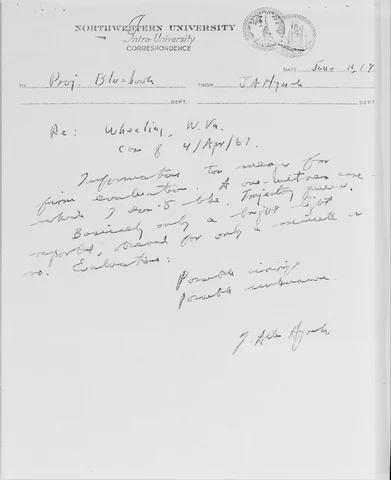 NORTHWESTERN UNIVERSITY
Intra-University
CORRESPONDENCE
DATE June
TO Proj. Bluebook FROM J A Hynek
DEPT. DEPT.
Re: Wheeling, W. Va.
Case of 4/Apr/67
Information too meager for
firm evaluation. A one-witness case
which I don't like. Trajectory queer.
Basically only a bright light
reported, observed for only a minute or
so. Evaluation:
Possible aircraft
Possible unknown
J. Allen Hynek